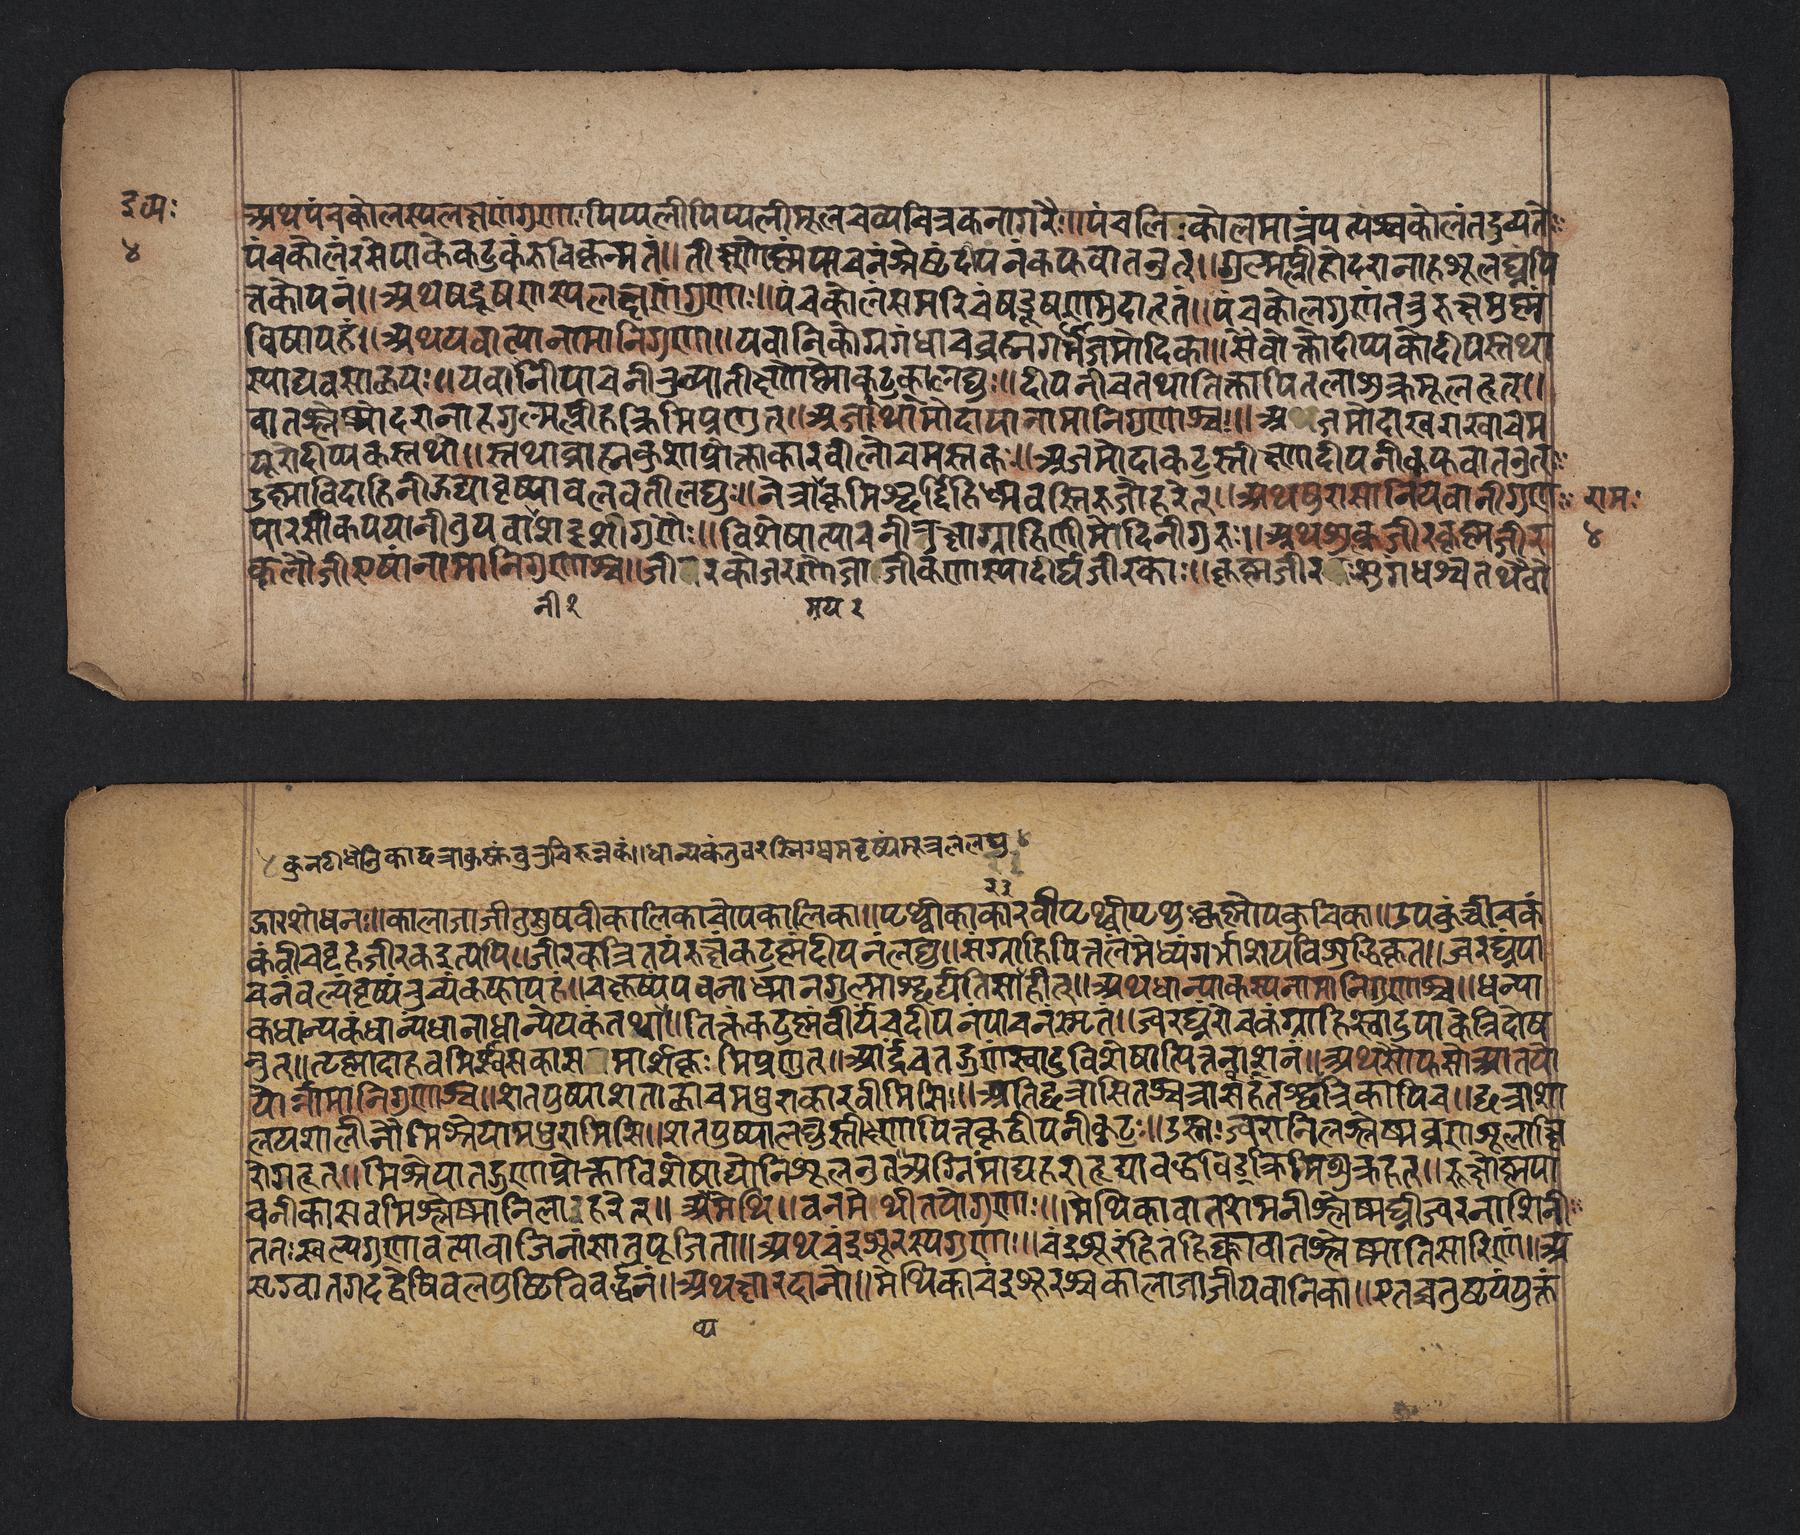 द्रव्यः
४
अथपंचकोलस्यलक्षणंगुणाः पिप्पलीपिप्पलीमूलचव्यचित्रकनागरैः॥पंचभिः कोलमात्रंयत्पञ्चकोलंतदुच्यते
पंचकोलंरसेपाकेकटुकंरुचिकृन्मतं॥तीक्ष्णोष्णंपाचनंश्रेष्टंदीपनंकफवातनुत्॥गुल्मप्लीहोदरानाहशूलघ्नंपि
त्तकोपनं॥अथषडूषणस्यलक्षणगुणाः॥पंचकोलंसमरिचंषडूषणमुदाहृतं॥पंचकोलगुणंतत्तुरुक्षमुष्णं
विषापहं॥अथयवान्यानामानिगुणा॥यवानिकोग्रगंधाचब्रह्मगर्भाजमोदिका॥सैवोक्तादीप्यकादीपस्तथा
स्याद्यवसाह्वयः॥यवानीपाचनीरुच्यातीक्ष्णोष्णाकटुकालघुः॥दीपनीचतथातिक्तापितलाशुक्रशूलहृत्॥
वातश्लेष्मोदरानाहगुल्मप्लीहक्रिमिप्रणुत्॥अजमोदायानामानिगुणाश्च॥अथजमोदाखराखाचम
यूरोदीप्यकस्तथा॥स्तथाब्राह्मकुशाप्रोक्ताकारवीलोचमस्तकः॥अजमोदाकटुस्तीक्ष्णादीपनीकफवातनुत्
उष्माविदाहिनीहृद्यावृष्यावलवतीलघुः॥नेत्रोकृमिछर्द्दिहिध्मवस्तिरुजोहरेत्॥अथषुरासानियवानीगुणाः
पारसीकयवानीतुयवानीशदृशीगुणैः॥विशेषात्पाचनीरुच्याग्राहिणीमोदिनीगुरुः॥अथशुक्लजीरकृष्णजीर
कृलौजीरुषांनामानिगुणाश्च॥जीरकोजरणोजाजीकणास्यादीर्घजीरकाः॥कृष्णजीरःशुगधश्चतथैवो
राम
४
नी१
मय१
कुनटीधेनिकाछत्राकुस्तंवुरुवितुन्नकं॥धान्यकंतुवरस्निग्धमवृष्यंमूत्रललघु ४
द्गारशोधनः॥कालाजाजीतुसुषवीकालिकाचोपकालिका॥पृथ्वीकाकारवीपृथ्वीपृथुःकृष्णोपकुचिका॥उपकुंचीचकं
कंवीचवृहजीरकइत्यपि॥जीरकत्रितयंरुक्षकटुष्णंदीपनंलघु॥संग्राहिपित्तलंमेध्यंगर्भाशयविशुद्धिकृत॥ज्वरघ्नंपा
चनंवल्यंवृष्यंरुच्यंकफापहं॥चक्षुष्यंपवनाध्मानगुल्माछर्द्यतिसारहीत्॥अथधान्याकस्यनामानिगुणाश्च॥धन्या
कंधान्यकंधान्यंधानाधान्येयकंतथा॥तिक्तकटुष्णवीर्यंचदीपनंपाचनंस्मृतं॥ज्वरघ्नंरोचकंग्राहिस्वादुपाकेत्रिदोष
नुत्॥तृष्णादाहवमिर्श्वासकासमार्शकृः मिप्रणुत॥आर्द्रंचतद्गुणंस्वादुविशेषात्पित्तनाशनं॥अथसौंफसोआतयो
र्नामानिगुणाश्च॥शतपुष्पाशताह्वाचमधुराकारवीमिसिः॥अतिछत्रासितश्चत्रासंहतश्छत्रिकापिच॥छत्राशा
लयशालीनौमिश्रेयामधुरामिसि॥शतपुष्पालघुस्तीक्ष्णापित्तकृद्दीपनीकटुः॥उस्नःज्वरानिलश्लेष्मव्रणशूलाक्षि
रोगहृत॥मिश्रेयातद्गुणाप्रोक्ताविशेषाद्योनिशूलनुतअग्निमांद्यहराहृद्यावद्धविट्क्रिमिशुक्रहृत्॥रुक्षोष्णपा
चनीकासवमिश्लेष्मानिलाहरेत्॥अमेथि॥वनमेथीतयोगुणाः॥मेथिकावातशमनीश्लेष्मघ्नीज्वरनाशिनी
ततःस्वल्पगुणावन्यावाजिनांसातुपूजिता॥अथचंद्रशूरस्यगुणाः॥चंद्रशूरंहितंहिक्कावातश्लेष्मातिसारिणां॥अ
सृग्वातगदद्वेषिवलपुष्टिविवर्द्धनं॥अथच्चारदाना॥मेथिकाचंद्रशूरश्चकालाजाजीयवानिका॥एतच्चतुष्टयंयुक्तं
ष्य